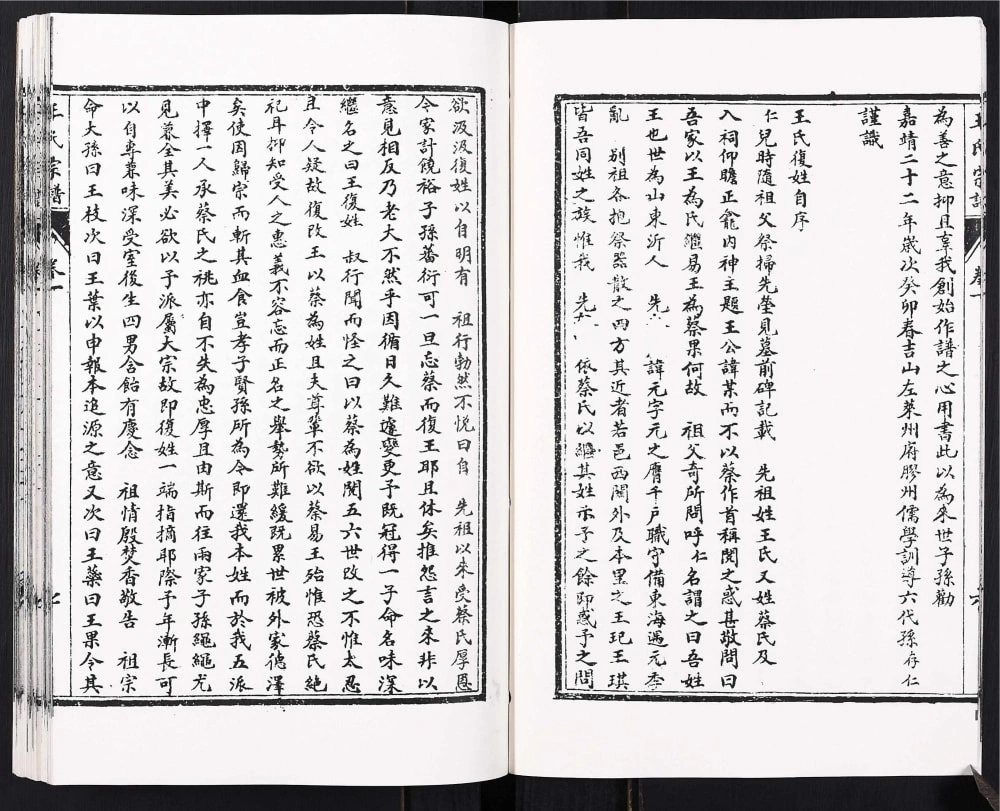 為善之意抑且辜我創始作譜之心用書此以為來世子孫勸
嘉靖二十二年歲次癸卯春吉山左萊州府膠州儒學訓導六代孫存仁
謹識
王氏復姓自序
仁兒時隨祖父祭掃先塋見墓前碑記載 先祖姓王氏又姓蔡氏及
入祠仰瞻正龕內神主題王公諱某而不以蔡作首稱閱之惑甚敬問曰
吾家以王為氏繼易王為蔡果何故 祖父奇所問呼仁名謂之曰吾姓
王也世為山東沂人 先 諱元字元之膺千戶職守備東海遇元季
亂 別祖各抱祭器散之四方其近者若邑西關外及本里之王玘王琪
皆吾同姓之族惟我 先 依蔡氏以繼其姓示予之餘即惑予之問
王氏宗譜 卷一 六
欲汲汲復姓以自明有 祖行勃然不悅曰自 先祖以來受蔡氏厚恩
令家計饒裕子孫蕃衍可一旦忘蔡而復王耶且休矣推怨言之來非以
意見相反乃老大不然乎因循日久難遽變更予既冠得一子命名味深
繼名之曰王復姓 叔行聞而怪之曰以蔡為姓閱五六世改之不惟太忍
且令人疑故復改王以蔡為姓且夫尊輩不欲以蔡易王殆惟恐蔡氏絕
祀耳抑知受人之惠義不容忘而正名之舉勢所難緩既累世被外家德澤
矣使因歸宗而斬其血食豈孝子賢孫所為令即還我本姓而於我五派
中擇一人承蔡氏之祧亦自不失為忠厚且由斯而往兩家子孫繩繩尤
見兼全其美必欲以予派屬大宗故即復姓一端指摘耶際予年漸長可
以自專兼味深受室後生四男含飴有慶念 祖情殷焚香敬告 祖宗
命大孫曰王枝次曰王葉以申報本追源之意又次曰王藥曰王果令其
王氏宗譜 卷一 七